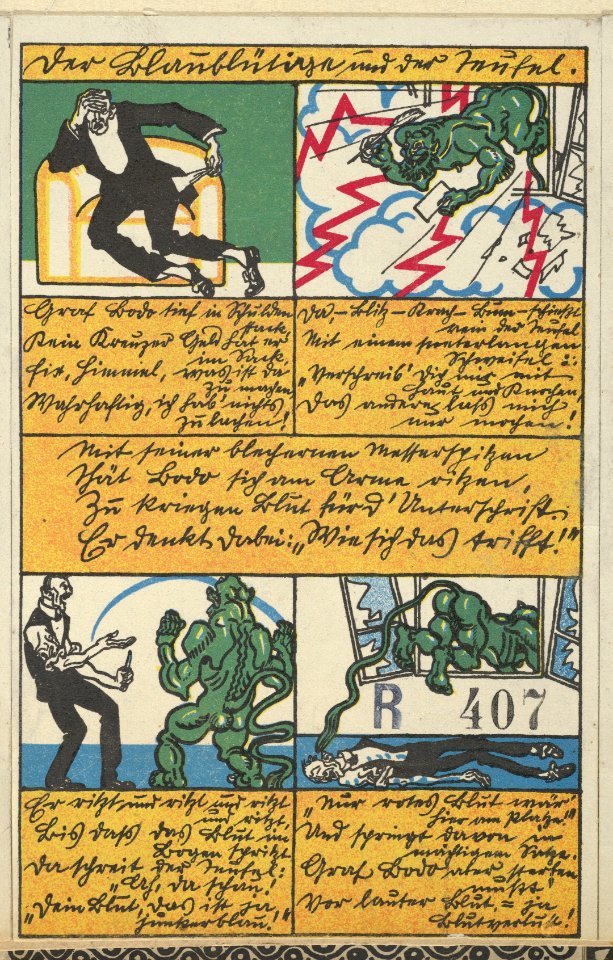 Der Blaublütige und der Teufel.
Graf Bodo tief in Schulden
stack,
Kein Kreuzer Geld hat er
im Sack,
Fix, Himmel, was ist da
zu machen,
Wahrhaftig, ich hab' nichts
zu lachen!
Da, – Blitz – Krach – Bum – schießt
rein der Teufel
Mit einem meterlangen
Schweifel u:
„Verschreib' Dich mir mit
Haut und Knochen,
Das andere laß mich
nur machen!
Mit seiner blechernen Messerspitzen
Thät Bodo sich am Arme ritzen,
Zu kriegen Blut für d' Unterschrift.
Er denkt dabei: „Wie sich das trifft!"
Er ritzt und ritzt und ritzt
und ritzt,
Bis daß das Blut im
Bogen spritzt
Da schreit der Teufel:
„Ah, da schau!
„Dein Blut, das ist ja
junkerblau!"
„Nur rotes Blut wär'
hier am Platze!"
Und springt davon in
mächtigem Satze.
Graf Bodo aber sterben
mußt'
Vor lauter Blut = ja
Blutverlust!
R 407